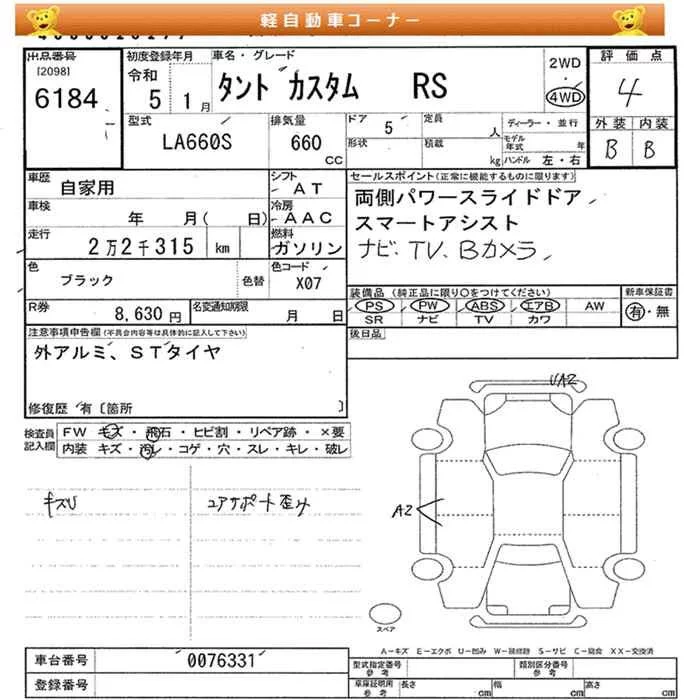 軽自動車コーナー
出品番号
[2098]
6184
初度登録年月
令和
5 1月
車名・グレード
タント カスタム RS
2WD
4WD
評価点
4
外装 内装
B B
型式
LA660S
排気量
660
CC
ドア 5
形状
定員 人
積載 kg
ディーラー・並行
モデル年式 年
ハンドル 左・右
車歴
自家用
シフト
AT
車検
年 月( 日)
冷房
AAC
走行
2万2千315 km
燃料
ガソリン
セールスポイント(正常に機能するものに限ります)
両側パワースライドドア
スマートアシスト
ナビ、TV、Bカメラ
色
ブラック
色替
色コード
X07
R券
8,630円
名変通知期限
月 日
装備品(純正品に限り〇をつけてください)
PS PW ABS エアB AW
SR ナビ TV カワ
新車保証書
有・無
後日品
注意事項申告欄(不具合内容等は具体的に記入して下さい)
外アルミ、STタイヤ
修復歴 有〔箇所 〕
検査員記入欄
FW キズ・飛石・ヒビ割・リペア跡・×要
内装 キズ・汚レ・コゲ・穴・スレ・キレ・破レ
キズU
コアサポート歪み
UA2
A2
スペア
A－キズ E－エクボ U－凹み W－補修跡 S－サビ C－腐食 XX－交換済
車台番号
0076331
登録番号
型式指定番号 参考
類別区分番号 参考
車庫証明用 参考
長さ cm
幅 cm
高さ cm